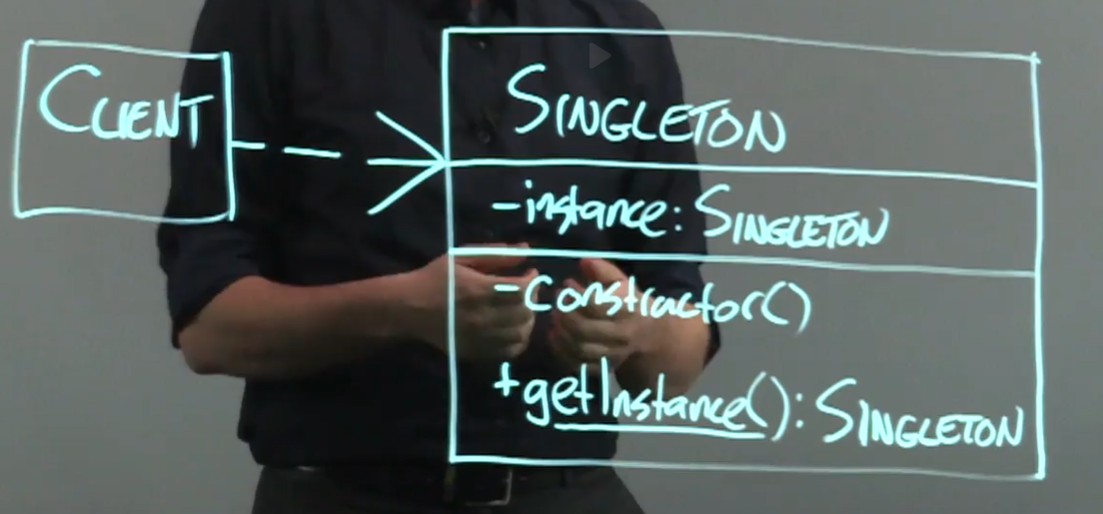 CLIENT
SINGLETON
-instance: SINGLETON
-constructor()
+getInstance(): SINGLETON